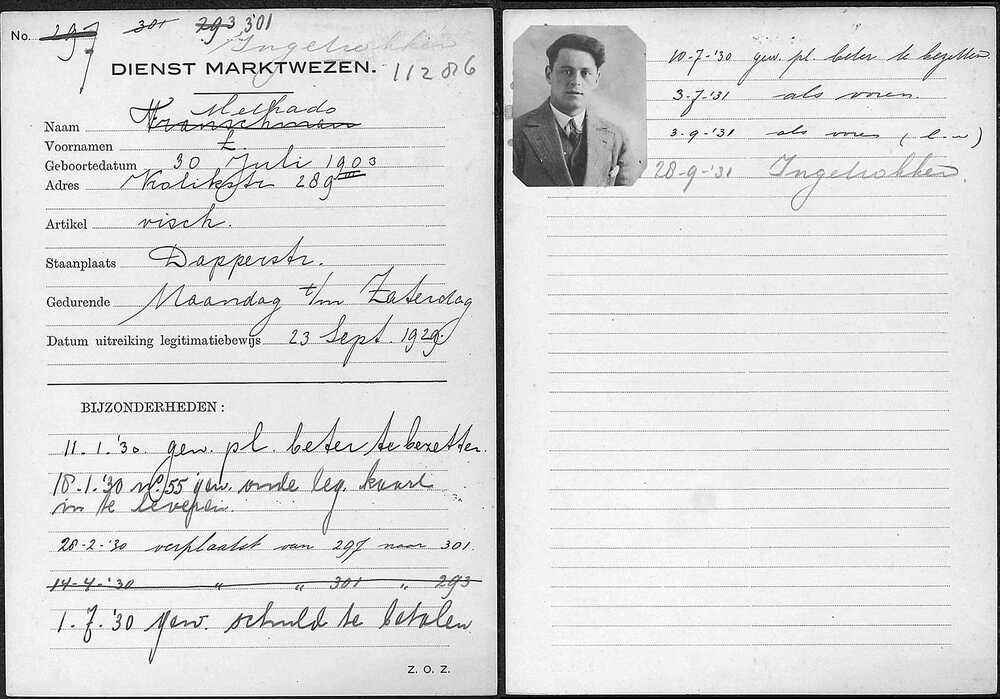 No. 297 301 293 301
Ingetrokken
DIENST MARKTWEZEN. 11286
Melhado
Naam Franschman
Voornamen
Geboortedatum 30 Juli 1903
Adres 289 III
Artikel visch.
Staanplaats Dapperstr.
Gedurende Maandag t/m Zaterdag
Datum uitreiking legitimatiebewijs 23 Sept. 1929.
BIJZONDERHEDEN:
11.1.'30. gew. pl. beter te bezetten.
18.1.'30 no. 55 gew. oude leg. kaart
in te leveren.
28-2-'30 verplaatst van 297 naar 301.
14-4-'30 " " 301 " 293
1.7.'30 gew. schuld te betalen
Z. O. Z.
10-7-'30 gew. pl. beter te bezetten.
3-7-'31 als voren.
3-9-'31 als voren
28-9-'31 Ingetrokken.